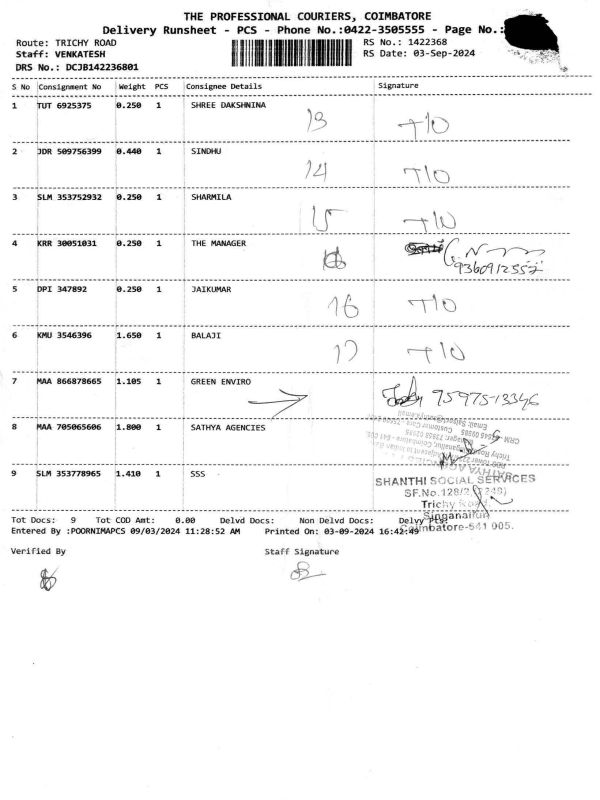 THE PROFESSIONAL COURIERS, COIMBATORE
Delivery Runsheet - PCS - Phone No.:0422-3505555 - Page No.:
Route: TRICHY ROAD RS No.: 1422368
Staff: VENKATESH RS Date: 03-Sep-2024
DRS No.: DCJB142236801
S No Consignment No Weight PCS Consignee Details Signature
1 TUT 6925375 0.250 1 SHREE DAKSHNINA
13 T10
2 JDR 509756399 0.440 1 SINDHU
14 T10
3 SLM 353752932 0.250 1 SHARMILA
15 T10
4 KRR 30051031 0.250 1 THE MANAGER
9360912552
5 DPI 347892 0.250 1 JAIKUMAR
16 T10
6 KMU 3546396 1.650 1 BALAJI
17 T10
7 MAA 866878665 1.105 1 GREEN ENVIRO
75975-13346
8 MAA 705065606 1.800 1 SATHYA AGENCIES
9 SLM 353778965 1.410 1 SSS
SHANTHI SOCIAL SERVICES
SF.No.128/2,
Trichy Road,
Singanallur
Coimbatore-641 005.
Tot Docs: 9 Tot COD Amt: 0.00 Delvd Docs: Non Delvd Docs: Delvy
Entered By :POORNIMAPCS 09/03/2024 11:28:52 AM Printed On: 03-09-2024 16:42:49
Verified By Staff Signature